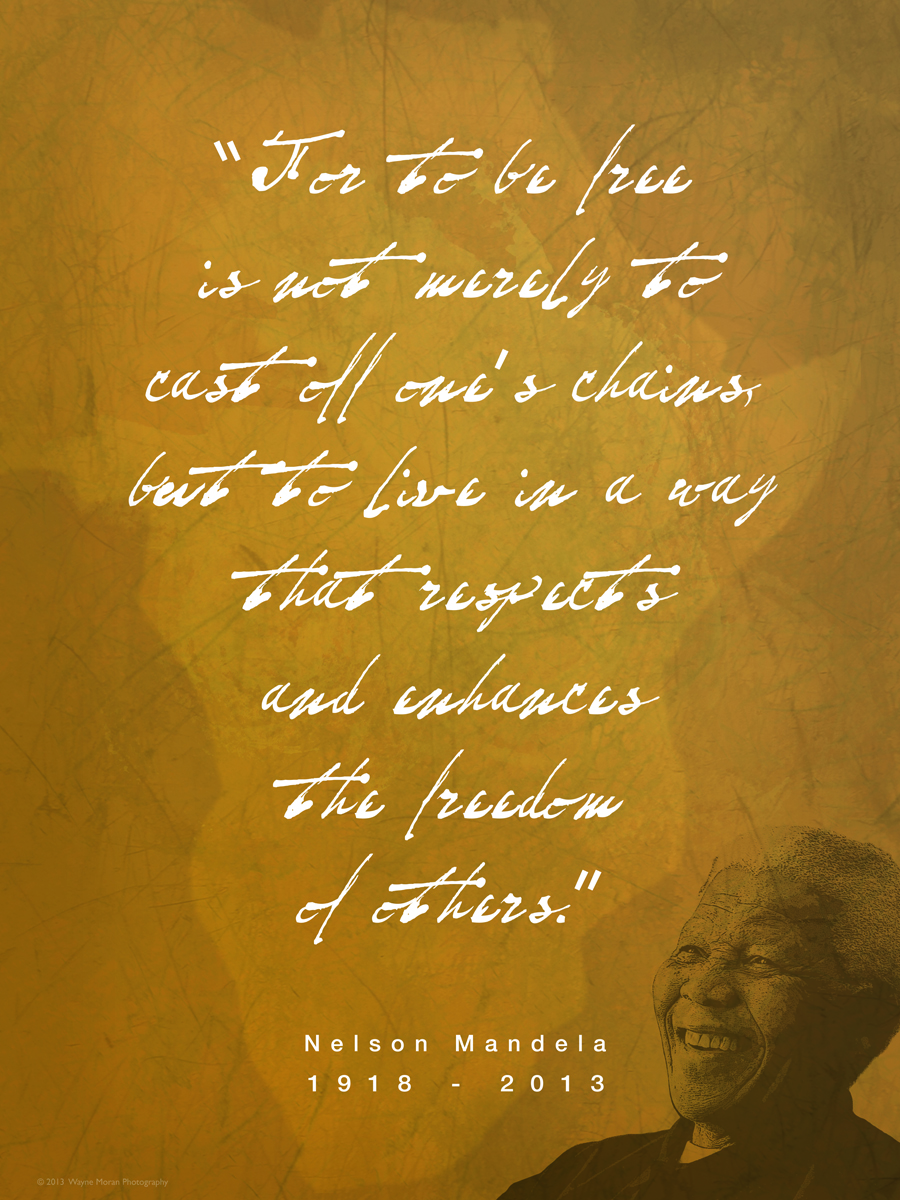 "For to be free
is not merely to
cast off one's chains,
but to live in a way
that respects
and enhances
the freedom
of others."
Nelson Mandela
1918 - 2013
© 2013 Wayne Moran Photography